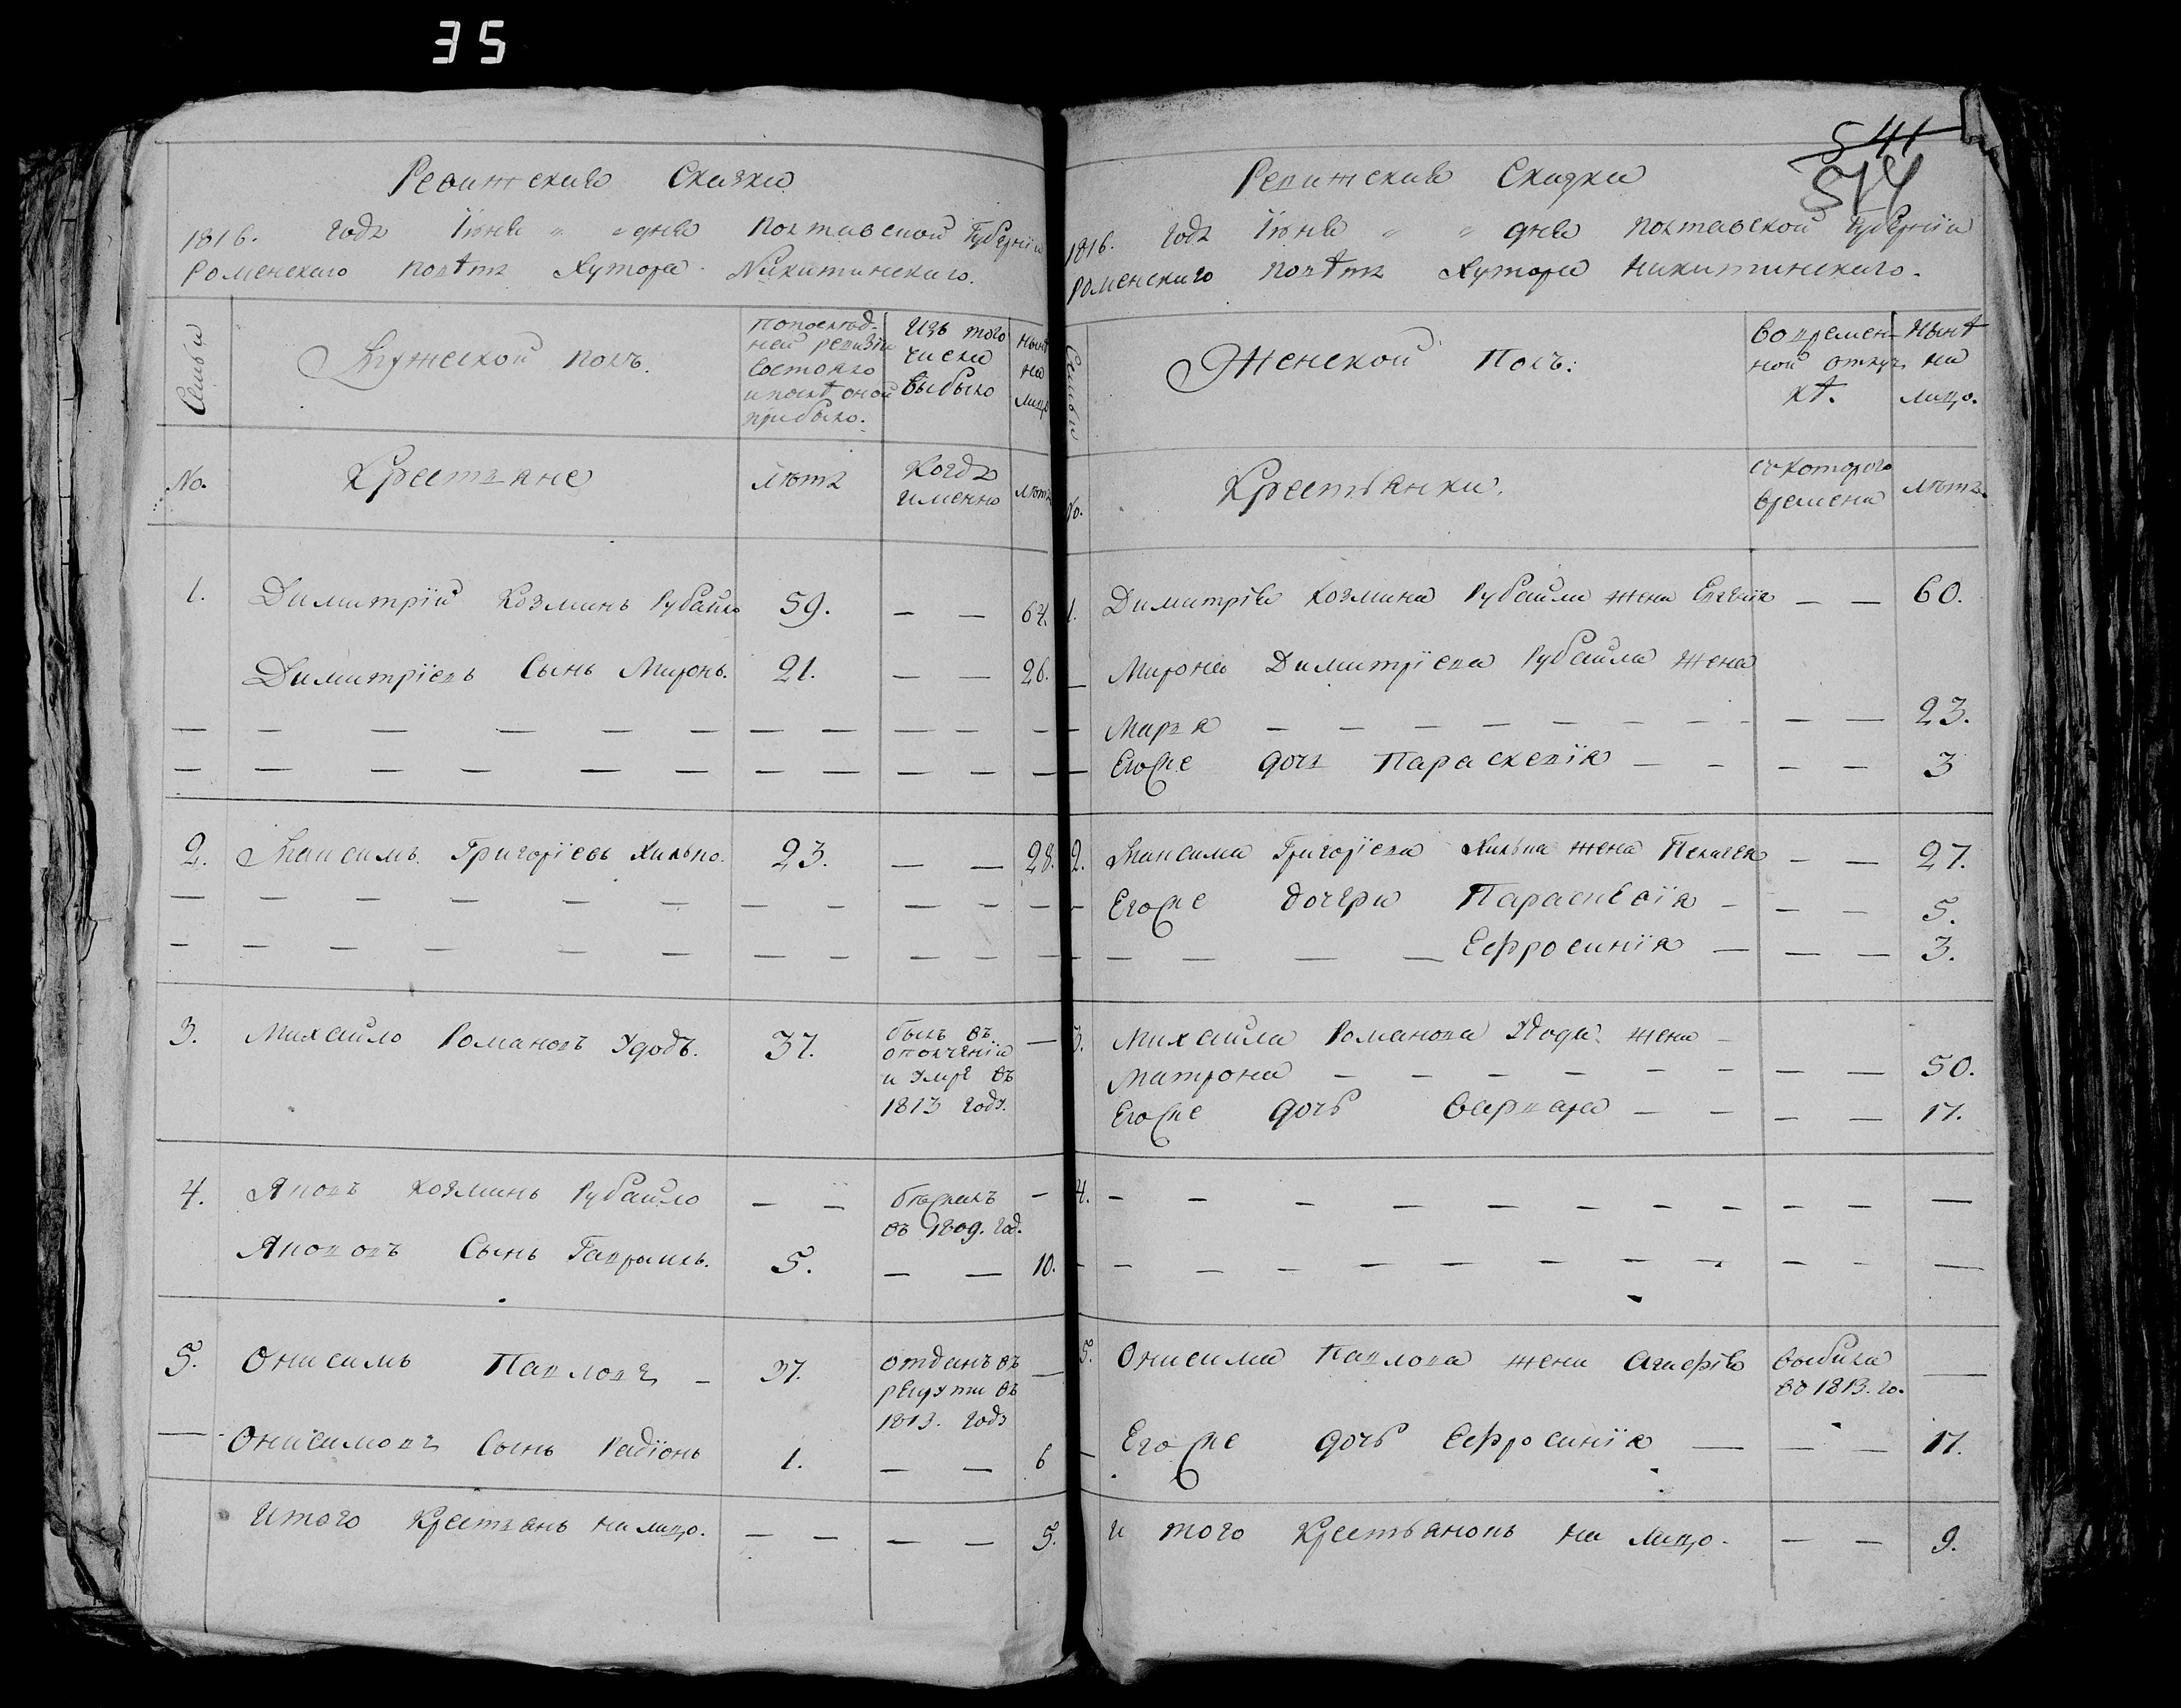 35
Ревижская Сказка
1816. года Іюня " " дня Полтавской Губерніи
Роменскаго повѣта Хутора Никитинскаго.
Семьи
Мужеской полъ.
По послѣд-
ней ревизіи
состояло
и послѣ оной
прибыло.
Изъ того
числа
выбыло
Нынѣ
на
лицо
No.
Крестьяне
лѣта
Когда
именно
лѣта
1. Димитрій Козминъ Рубайло 59. — — 64.
Димитріевъ Сынъ Миронъ. 21. — — 26.
2. Максимъ Григорієвъ Хилько. 23. — — 28.
3. Михайло Романовъ Удодъ. 37. былъ въ —
ополченіи
и умре въ
1813 году.
4. Яковъ Козминъ Рубайло — — бѣжалъ —
въ 1809. год.
Якововъ Сынъ Гавріилъ. 5. — — 10.
5. Онисимъ Павловъ — 37. отданъ въ —
рекруты въ
1813. году
Онисимовъ Сынъ Радіонъ 1. — — 6
Итого Крестьянъ на лицо. — — — — 5.
541
544
Ревижская Сказка
1816. года Іюня " " дня Полтавской Губерніи
Роменскаго повѣта Хутора Никитинскаго.
Семьи
Женской Полъ:
Во времен-
ной отлуч-
кѣ.
Нынѣ
на
лицо.
No.
Крестьянки.
съ котораго
времени
лѣта.
1. Димитрія Козмина Рубайла жена Евгенія — — 60.
Мирона Димитрієва Рубайла жена
Марья — — 23.
Егоже дочь Параскевія — — 3
2. Максима Григорієва Хилька жена Пелагея — — 27.
Егоже дочери Параскевія — — 5.
Ефросинія — — 3.
3. Михайла Романова Удода жена —
Матрона — — 50.
Егоже дочь Варвара — — 17.
4. — — —
5. Онисима Павлова жена Агафія выбыла —
во 1813. го.
Егоже дочь Ефросинія — — 17.
и того Крестьянокъ на лицо. — — 9.